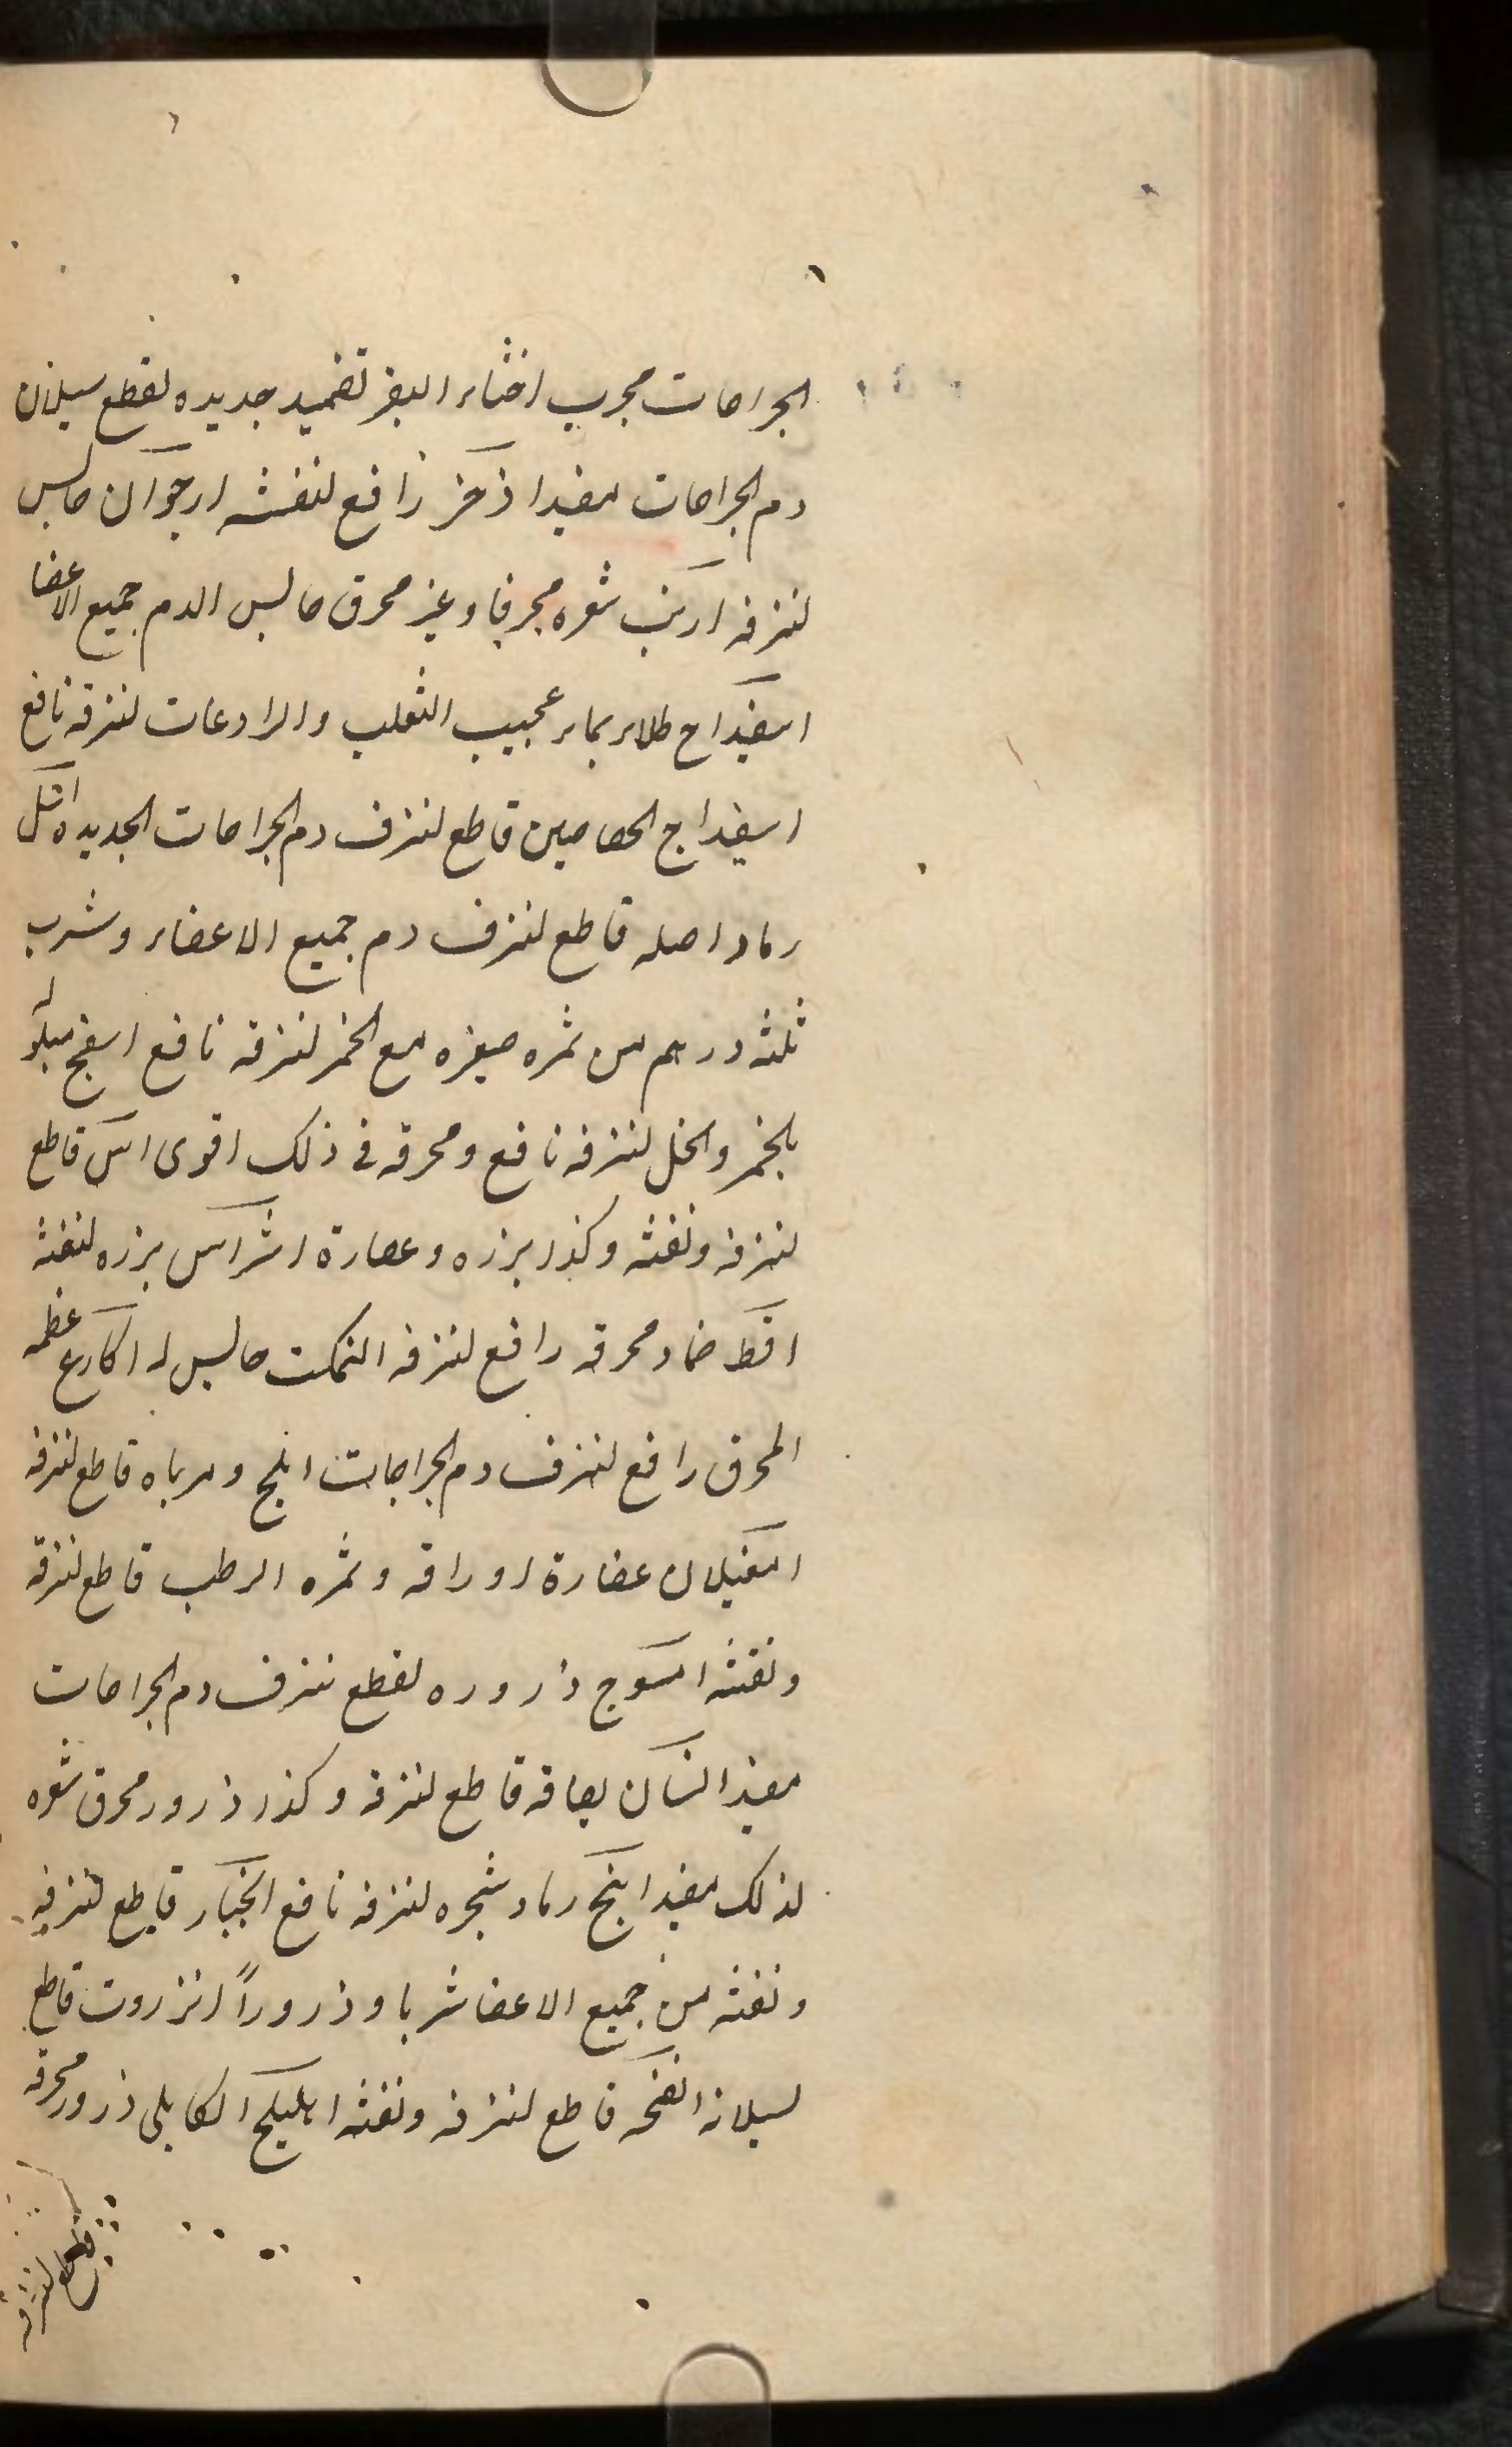 الجراحات مجرب اخثاء البقر تضميد جديده لقطع سيلان
دم الجراحات مفيد اذخر نافع لنفثه ارجوان حابس
لنزفه ارنب شعره محرقا وغير محرق حابس الدم جميع الاعضا
اسفيداج طلاء بماء عجيب الثعلب والرادعات لنزفه نافع
اسفيداج الجصاصين قاطع لنزف دم الجراحات الجديده اثل
رماد اصله قاطع لنزف دم جميع الاعضاء وشرب
ثلثه درهم من ثمره مع الخمر لنزفه نافع اسفنج مبلو
بالخمر والخل لنزفه نافع ومحرقه في ذلك اقوى اس قاطع
لنزفه ونفثه وكذا بزره وعصارة اشراس بزره لنفثه
اقط ضماد محرقه رافع لنزفه التمكت حابس له اكارع عظمه
المحرق رافع لنزف دم الجراحات املج ومرباه قاطع لنزفه
امغيلان عصارة اوراقه وثمره الرطب قاطع لنزفه
ونفثه اسوج ذروره لقطع نزف دم الجراحات
مفيد انسان بصاقه قاطع لنزفه وكذا ذرور محرق شعره
لذلك مفيد اينج رماد شجره لنزفه نافع انجبار قاطع لنزفه
ونفثه من جميع الاعضا شربا وذروراً انزروت قاطع
لسيلانه انفحه قاطع لنزفه ونفثه اهليلج الكابلي ذرور محرقه
قاطع لنزفه